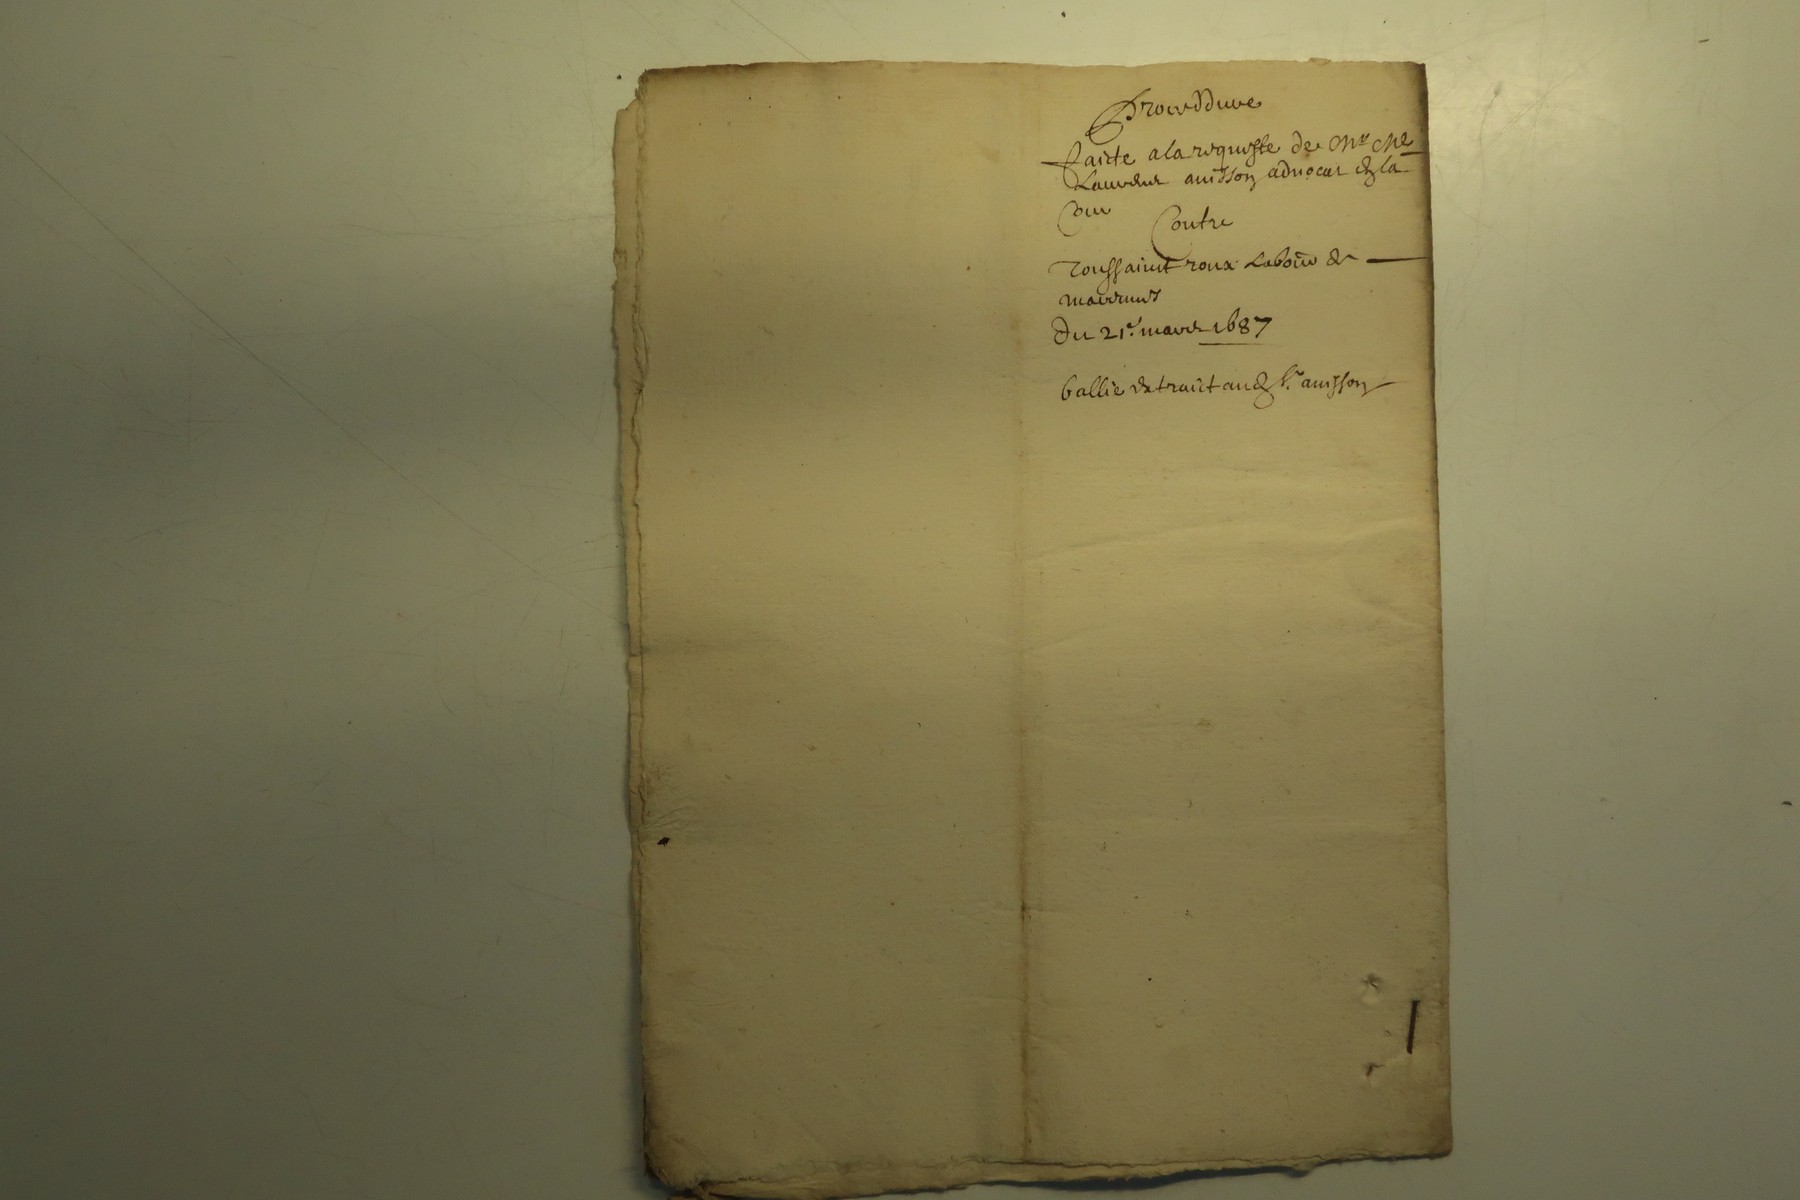 Proceddure
faicte a la requeste de Mr Me
Laurens anisson advocat en la
Cour
Contre
Toussainct roux Labour de
du 21e mars 1687
ballié extraict aud sr anisson